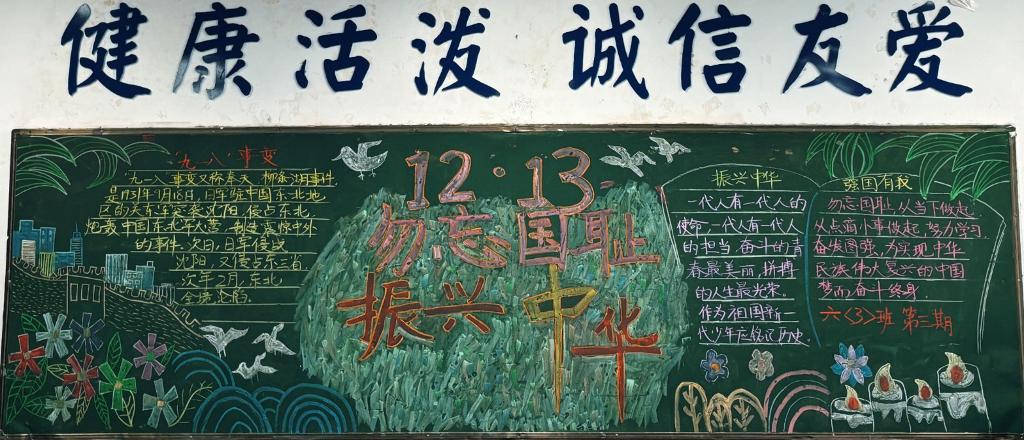 健康活泼 诚信友爱
"九一八"事变
"九一八"事变又称奉天、柳条湖事件
是1931年9月18日,日军驻中国东北地
区的关东军突袭沈阳,侵占东北
炮轰中国东北军大营,制造震惊中外
的事件。次日,日军侵战
沈阳,又侵占东三省
次年2月,东北
全境沦陷。
12·13
勿忘国耻
振兴中华
振兴中华
一代人有一代人的
使命一代人有一代人
的担当,奋斗的青
春最美丽,拼搏
的人生最光荣。
作为祖国新一
代少年应铭记历史
强国有我
勿忘国耻,从当下做起,
从点滴小事做起,努力学习
奋发图强,为实现中华
民族伟大复兴的中国
梦而奋斗终身.
六〈3〉班 第三期